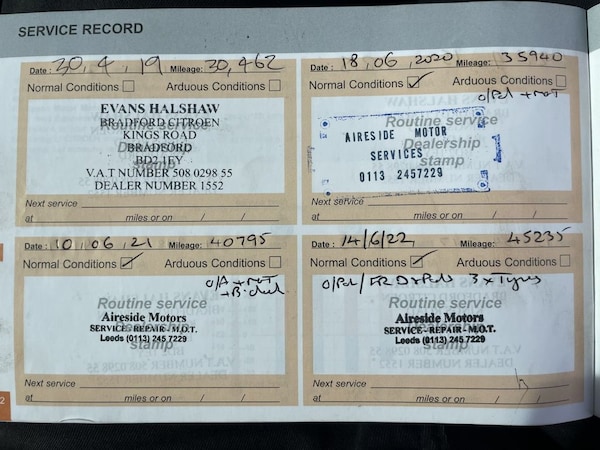 SERVICE RECORD
Date : 30, 4, 19 Mileage: 30,462
Normal Conditions Arduous Conditions
EVANS HALSHAW
BRADFORD CITROEN
KINGS ROAD
BRADFORD
BD2 1EY
V.A.T NUMBER 508 0298 55
DEALER NUMBER 1552
Routine service
Dealership
stamp
Next service
at miles or on / /
Date : 18, 06, 2020 Mileage: 35940
Normal Conditions Arduous Conditions
+ MOT
AIRESIDE MOTOR
SERVICES
0113 2457229
Routine service
Dealership
stamp
Next service
at miles or on / /
Date : 10, 06, 21 Mileage: 40795
Normal Conditions Arduous Conditions
+ MOT
Routine service
Aireside Motors
SERVICE - REPAIR - M.O.T.
Leeds (0113) 245 7229
Dealership
stamp
Next service
at miles or on / /
Date : 14/6/22 Mileage: 45235
Normal Conditions Arduous Conditions
3 x Tyres
Routine service
Aireside Motors
SERVICE - REPAIR - M.O.T.
Leeds (0113) 245 7229
Dealership
stamp
Next service
at miles or on / /
2